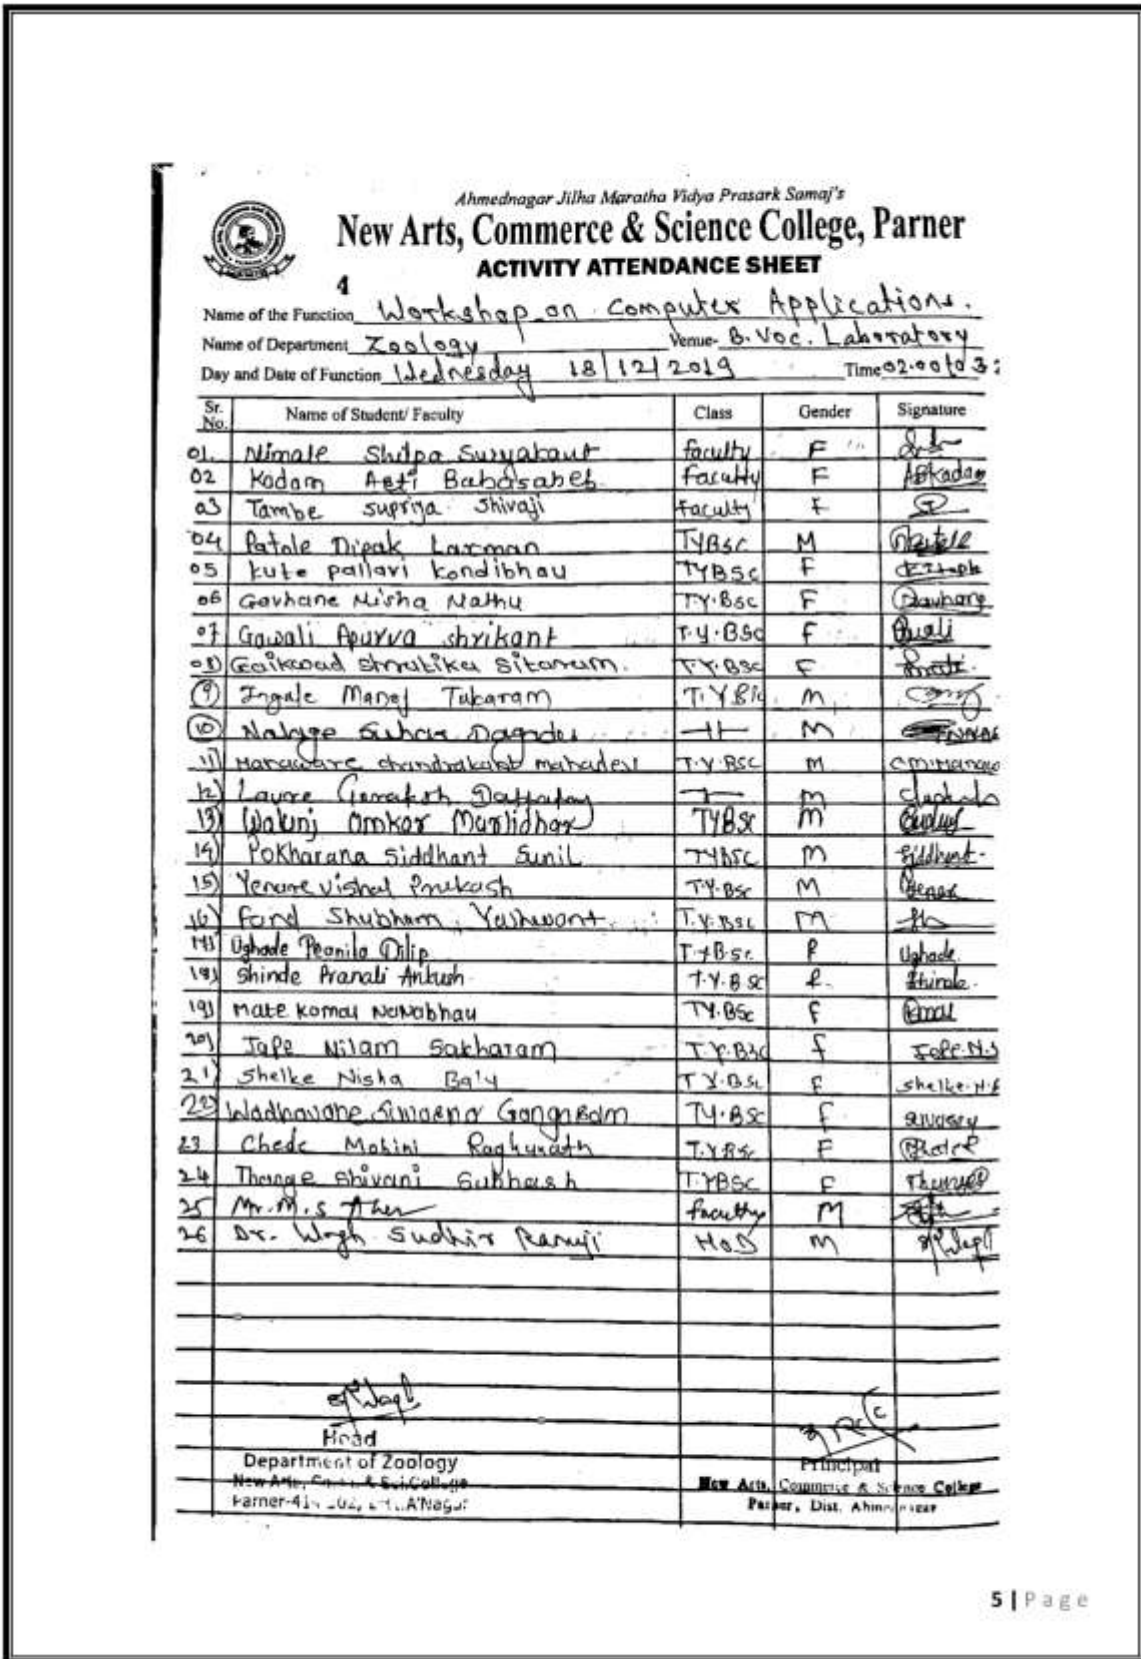 Ahmednagar Jilha Maratha Vidya Prasark Samaj's
New Arts, Commerce & Science College, Parner
ACTIVITY ATTENDANCE SHEET
4
Name of the Function Workshop on Computer Applications.
Name of Department Zoology Venue- B.Voc. Laboratory
Day and Date of Function Wednesday 18/12/2019 Time 02.00 to 3
Sr. No. Name of Student/ Faculty Class Gender Signature
01. Nimale Shilpa Suryakant faculty F
02 Kadam Arti Babasaheb Faculty F ABKadam
03 Tambe Supriya Shivaji Faculty F
04 Patole Dipak Laxman TYBSC M
05 kute pallavi kondibhau TYBSC F
06 Gavhane Nisha Nathu T.Y.BSC F Gavhane
07 Gawali Apurva shrikant T.Y.BSC F
08) Gaikwad Shrutika Sitaram. T.Y.BSC F
9) Ingale Manoj Tukaram T.Y BSc M
10 M
11) chandrakant mahadev T.Y.BSC M
12) Lavre M
13) Wakunj Omkar Murlidhar TYBSC M
14) Pokharana Siddhant Sunil TYBSC M Siddhant
15) Yenare vishal Prakash T.Y.BSC M
16) Fand Shubham Yashwant T.Y.BSC M
17) Ughade Dilip T.Y.B.Sc. F Ughade
18) Shinde Pranali Ankush T.Y.B SC F. Shinde
19) Mate Komal Nanabhau TY.BSc F
20) Jape Nilam Sakharam T.Y.BSC F Jape.N.S
21) Shelke Nisha T Y.BSC F Shelke.N.B
22) TY.BSC F
23 Chede Mohini Raghunath T.Y.BSc F
24 Thange Shivani Subhash T.YBSC F
25 Mr. M.S Aher faculty M
26 Dr. Wagh Sudhir Ranuji HOD M
Head
Department of Zoology
New Arts, Com. & Sci. College
Parner-41
Principal
New Arts, Commerce & Science College
Parner, Dist.
5 | Page